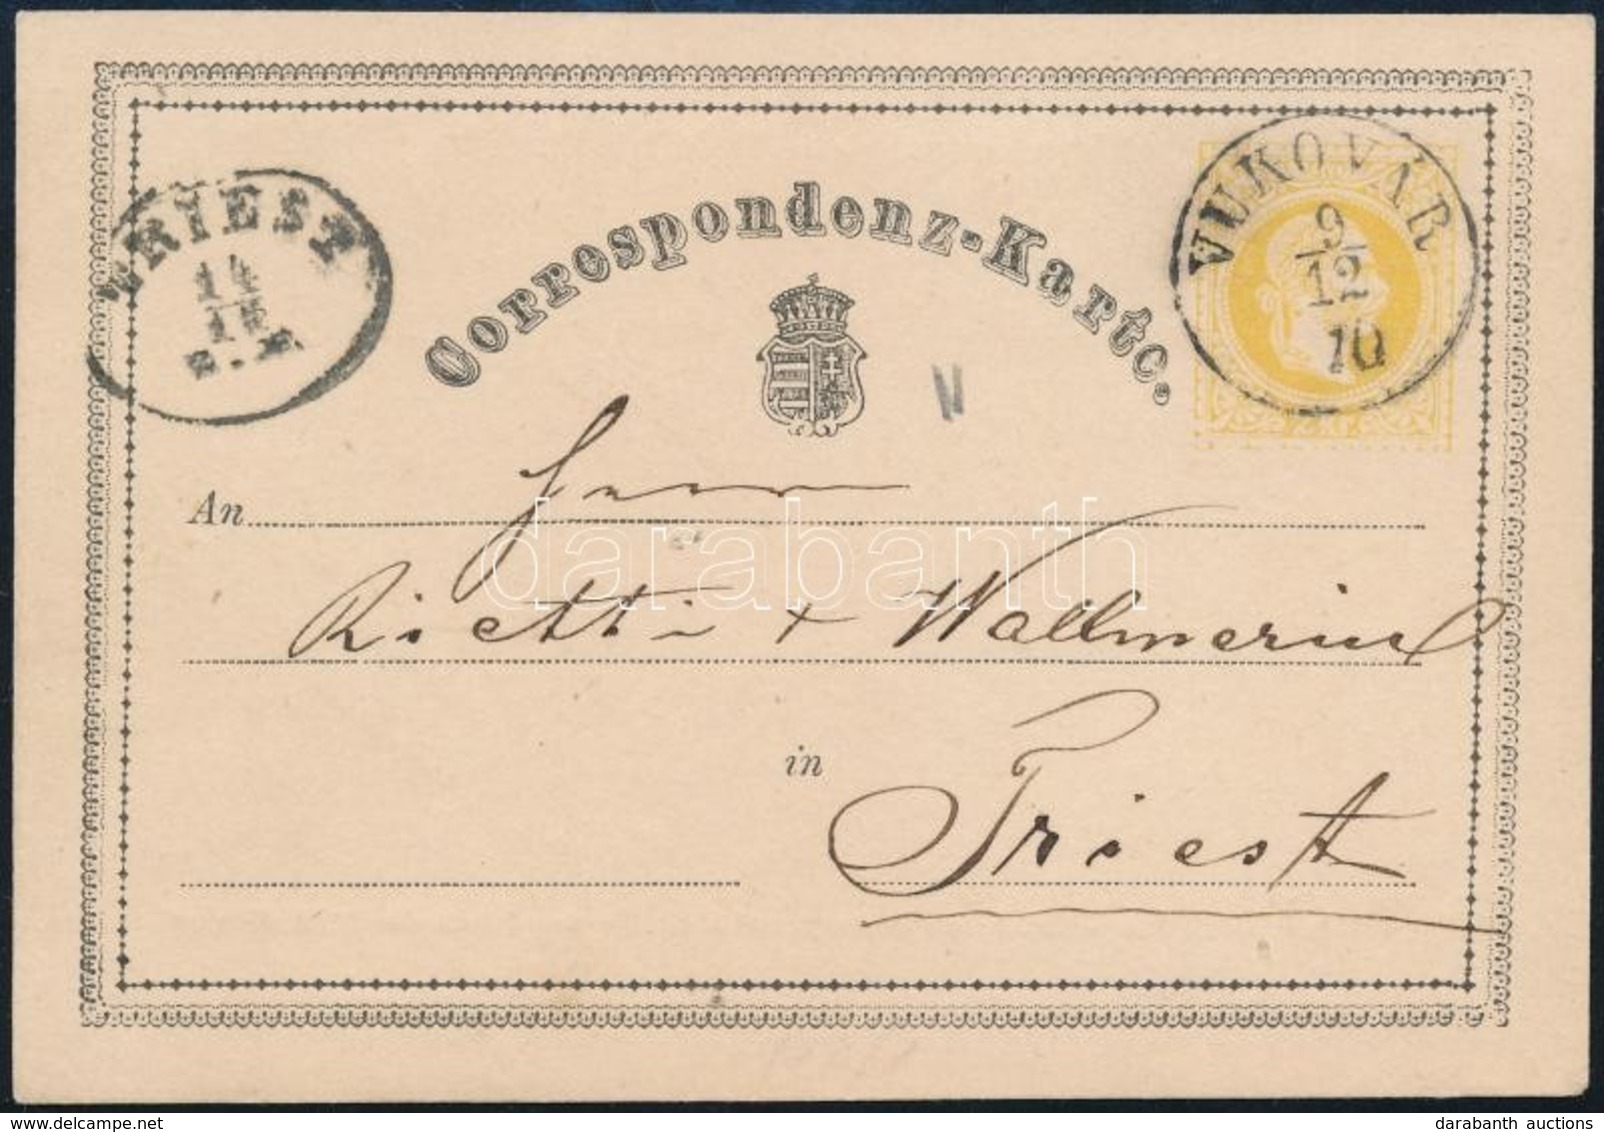 Correspondenz-Karte.
TRIEST
14
12
VUKOVÁR
9
12
70
An Herrn
Rietti + Wallmerich
in Triest
darabanth
delcampe.net
darabanth auctions